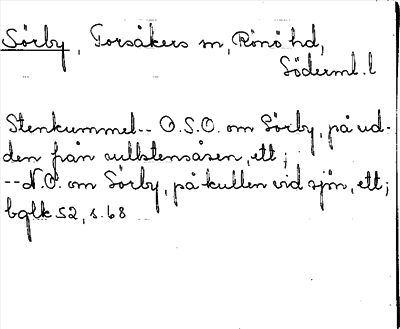 Sörby, Forsåkers sn, Rönö hd,
Söderml. l
Stenkummel-- O.S.O. om Sörby, på ud-
den från rullstensåsen, ett;
--N.O. om Sörby, på kullen vid sjön, ett;
bglk 52, s. 68